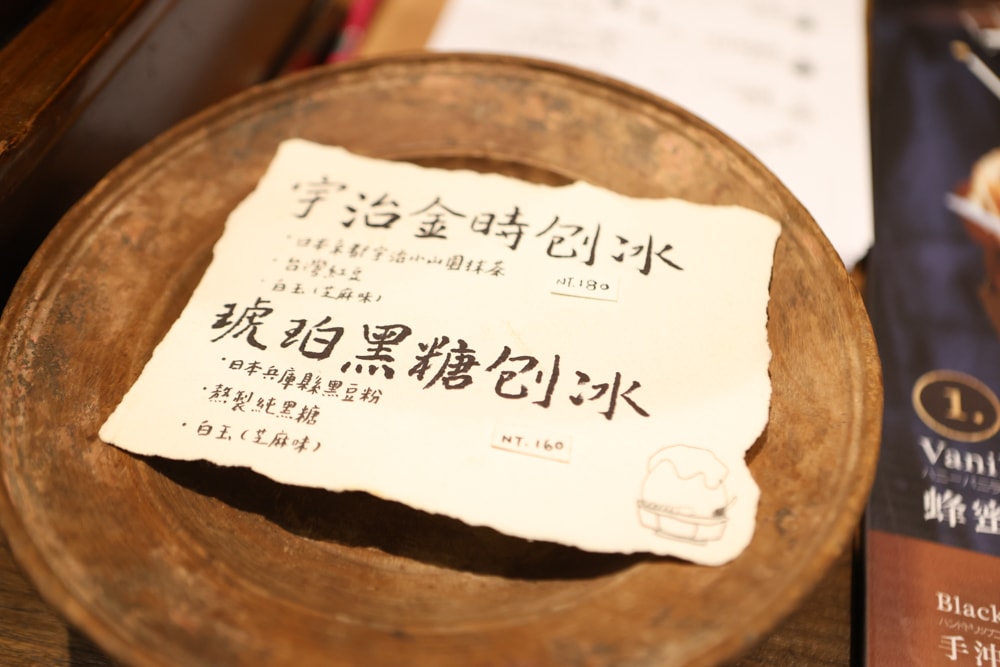 宇治金時刨冰
·日本京都宇治小山園抹茶
·台灣紅豆
·白玉(芝麻味)
NT.180
琥珀黑糖刨冰
·日本兵庫縣黑豆粉
·熬製純黑糖
·白玉(芝麻味)
NT.160
1.
Vani
蜂蜜
Black
手沖